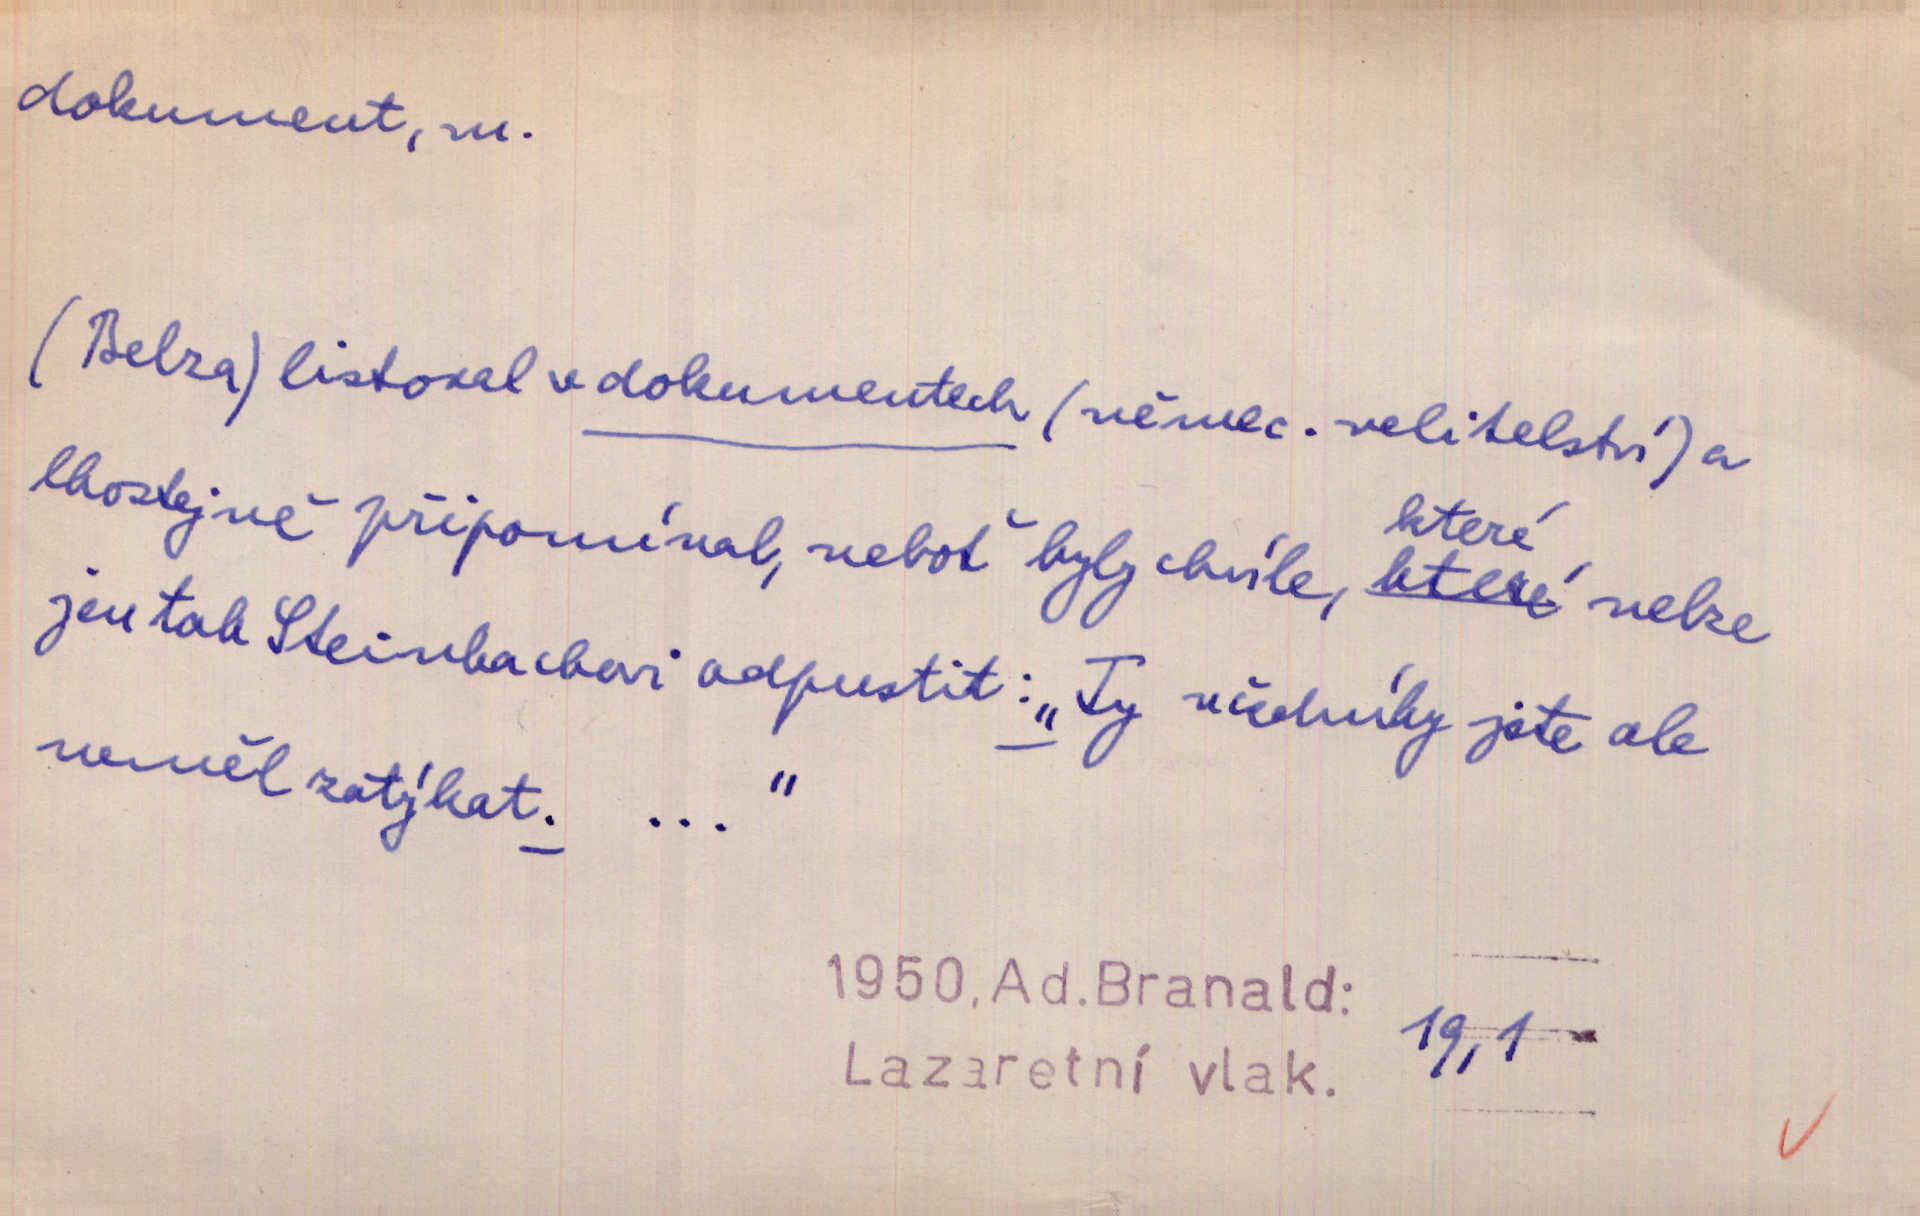 dokument, m.
(Belza) listoval v dokumentech (němec. velitelství) a
lhostejně připomínal, neboť byly chvíle, které
které nelze
jen tak Steinbachovi odpustit: „Ty všedníky jste ale
neměl zatýkat. ..."
1950, Ad. Branald:
Lazaretní vlak.
19,1